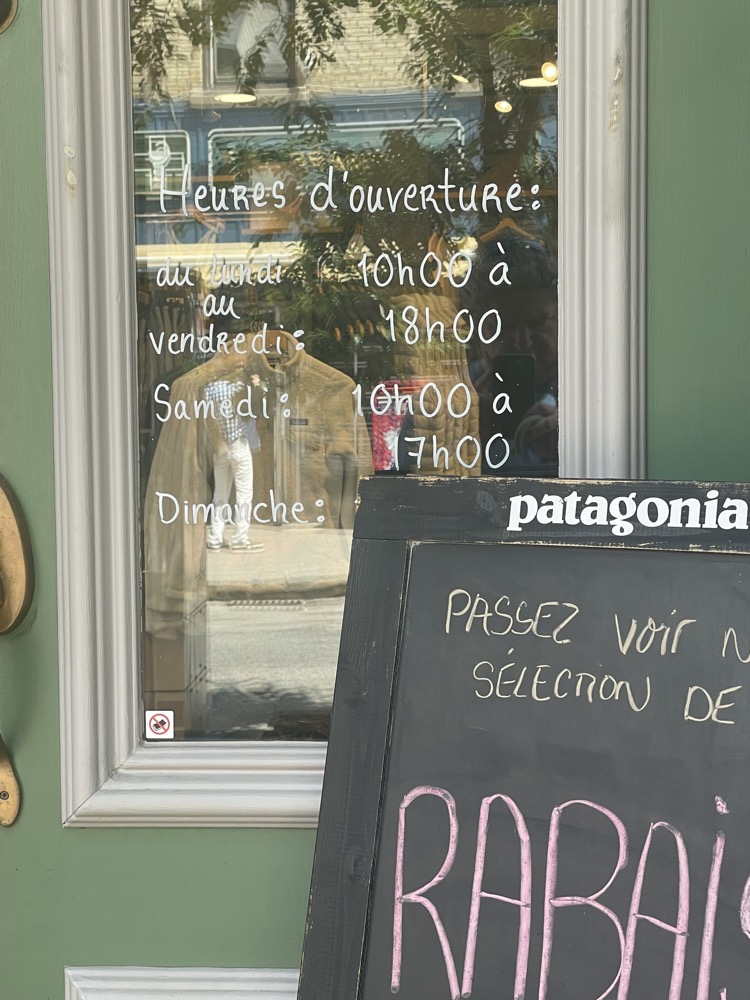 Heures d'ouverture:
du lundi au vendredi: 10h00 à 18h00
Samedi: 10h00 à 17h00
Dimanche:
patagonia
PASSEZ VOIR
SÉLECTION DE
RABAIS